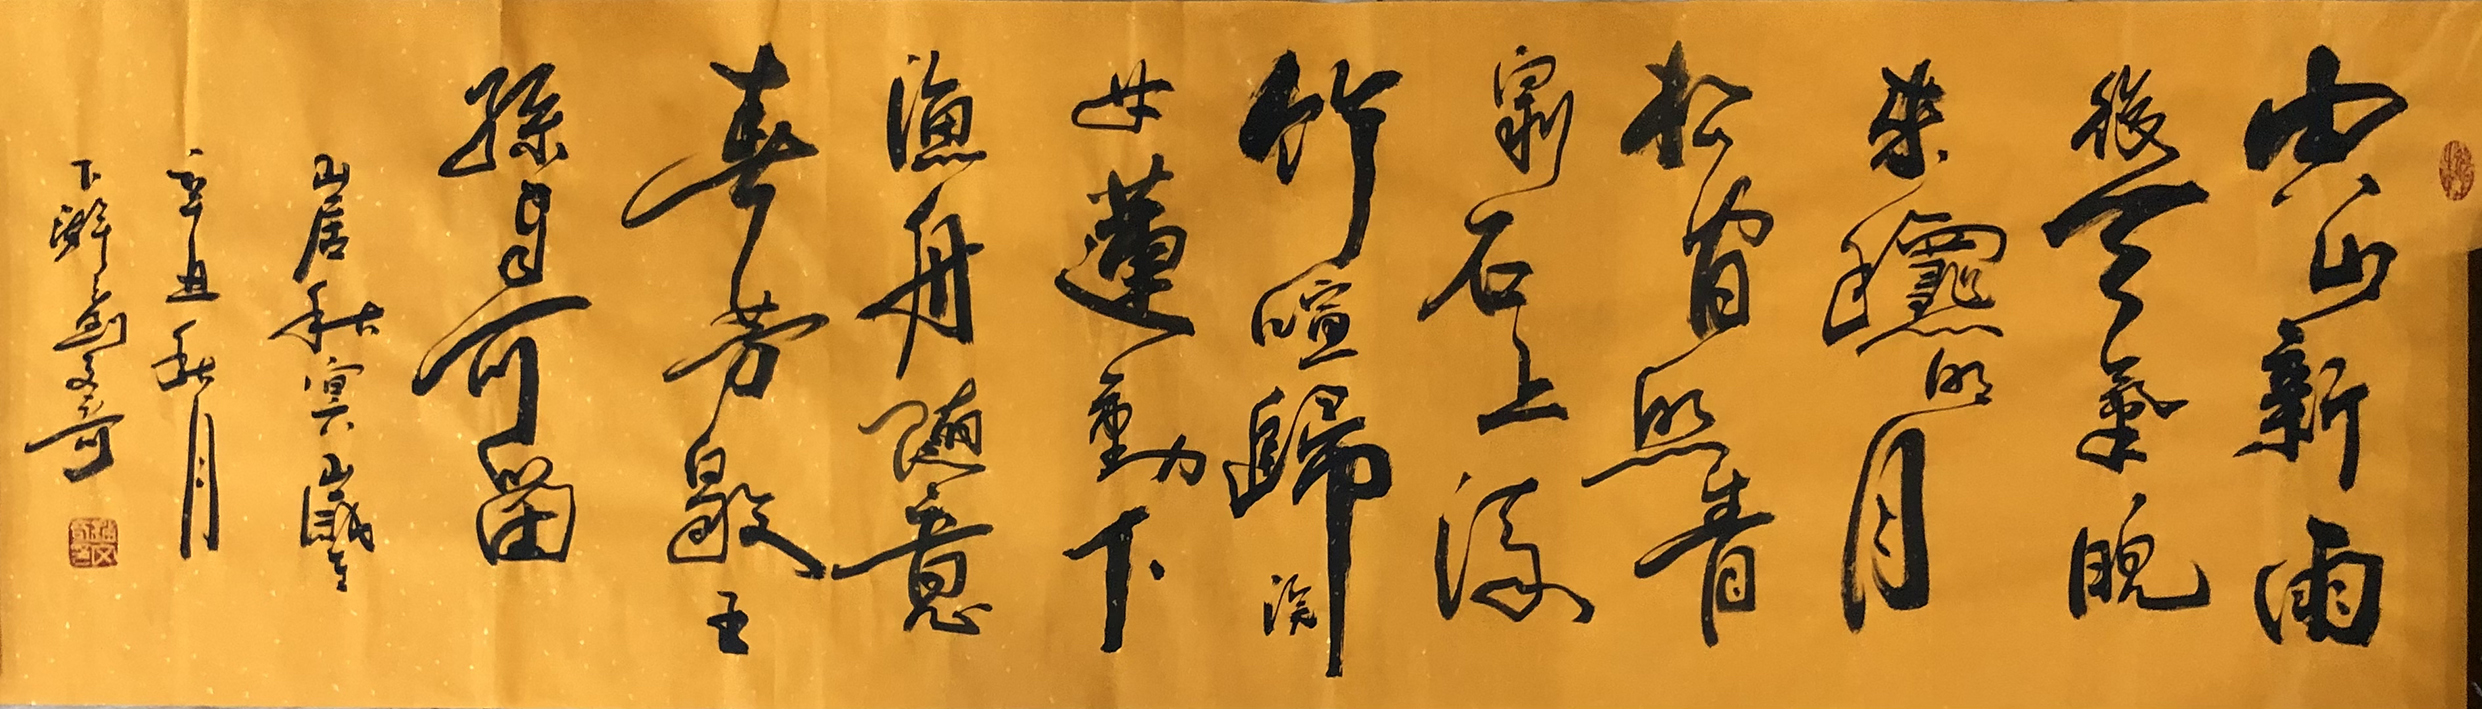 空山新雨
後天氣晚
來龝明月
松間照青
泉石上流
竹喧歸浣
女蓮動下
漁舟隨意
春芳歇王
孫自可留
山居秋冥
辛丑秋月
文奇